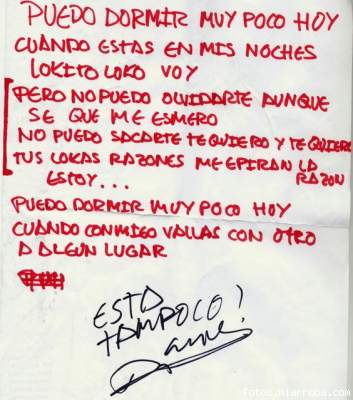 PUEDO DORMIR MUY POCO HOY
CUANDO ESTAS EN MIS NOCHES
LOKITO LOKO VOY
PERO NO PUEDO OLVIDARTE AUNQUE
SE QUE ME ESMERO
NO PUEDO SACARTE TE QUIERO Y TE QUIERO
TUS LOKAS RAZONES ME EPIRAN LA
RAZON
ESTOY...
PUEDO DORMIR MUY POCO HOY
CUANDO CONMIGO VALLAS CON OTRO
A ALGUN LUGAR
ESTA
TAMPOCO!
fotos.miarroba.com